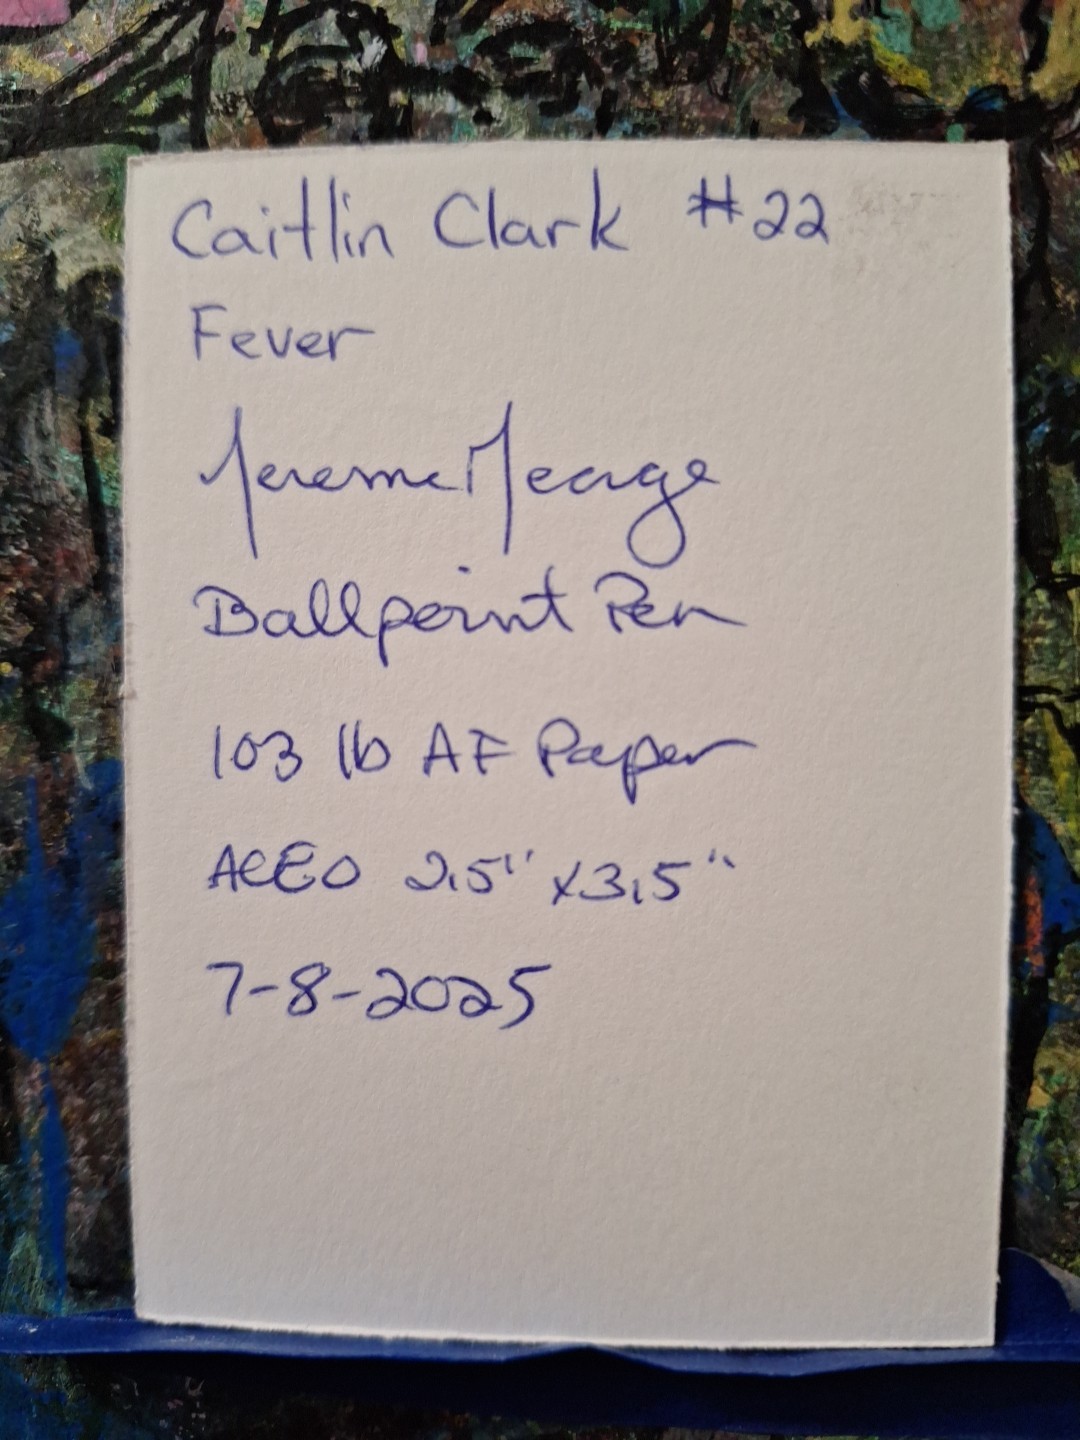 Caitlin Clark #22
Fever
Jereme Meage
Ballpoint Pen
103 lb AF Paper
ACEO 2.5" x 3.5"
7-8-2025